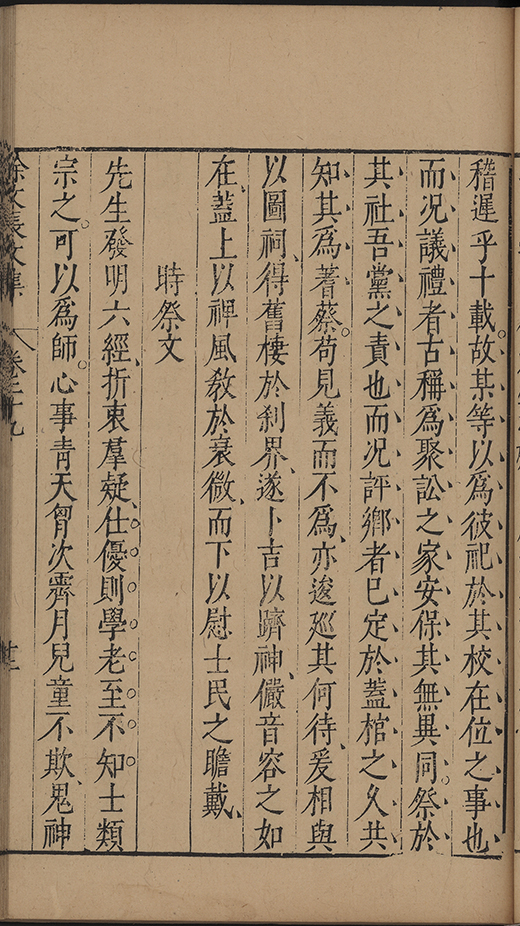 稽遲乎十載。故某等以爲彼祀於其校在位之事也、
而况議禮者古稱爲聚訟之家安保其無異同。祭於
其社吾黨之責也而况評鄉者已定於蓋棺之久共
知其爲蓍蔡。苟見義而不爲、亦逡廵其何待、爰相與
以圖祠、得舊棲於刹界、遂卜吉以躋神、儼音容之如
在、蓋上以裨風敎於衰微、而下以慰士民之瞻戴、
時祭文
先生發明六經、折衷羣疑、仕優則學老至不知士類
宗之。可以爲師。心事靑天胷次霽月兒童不欺、鬼神
徐文長文集 卷之十九 廿二